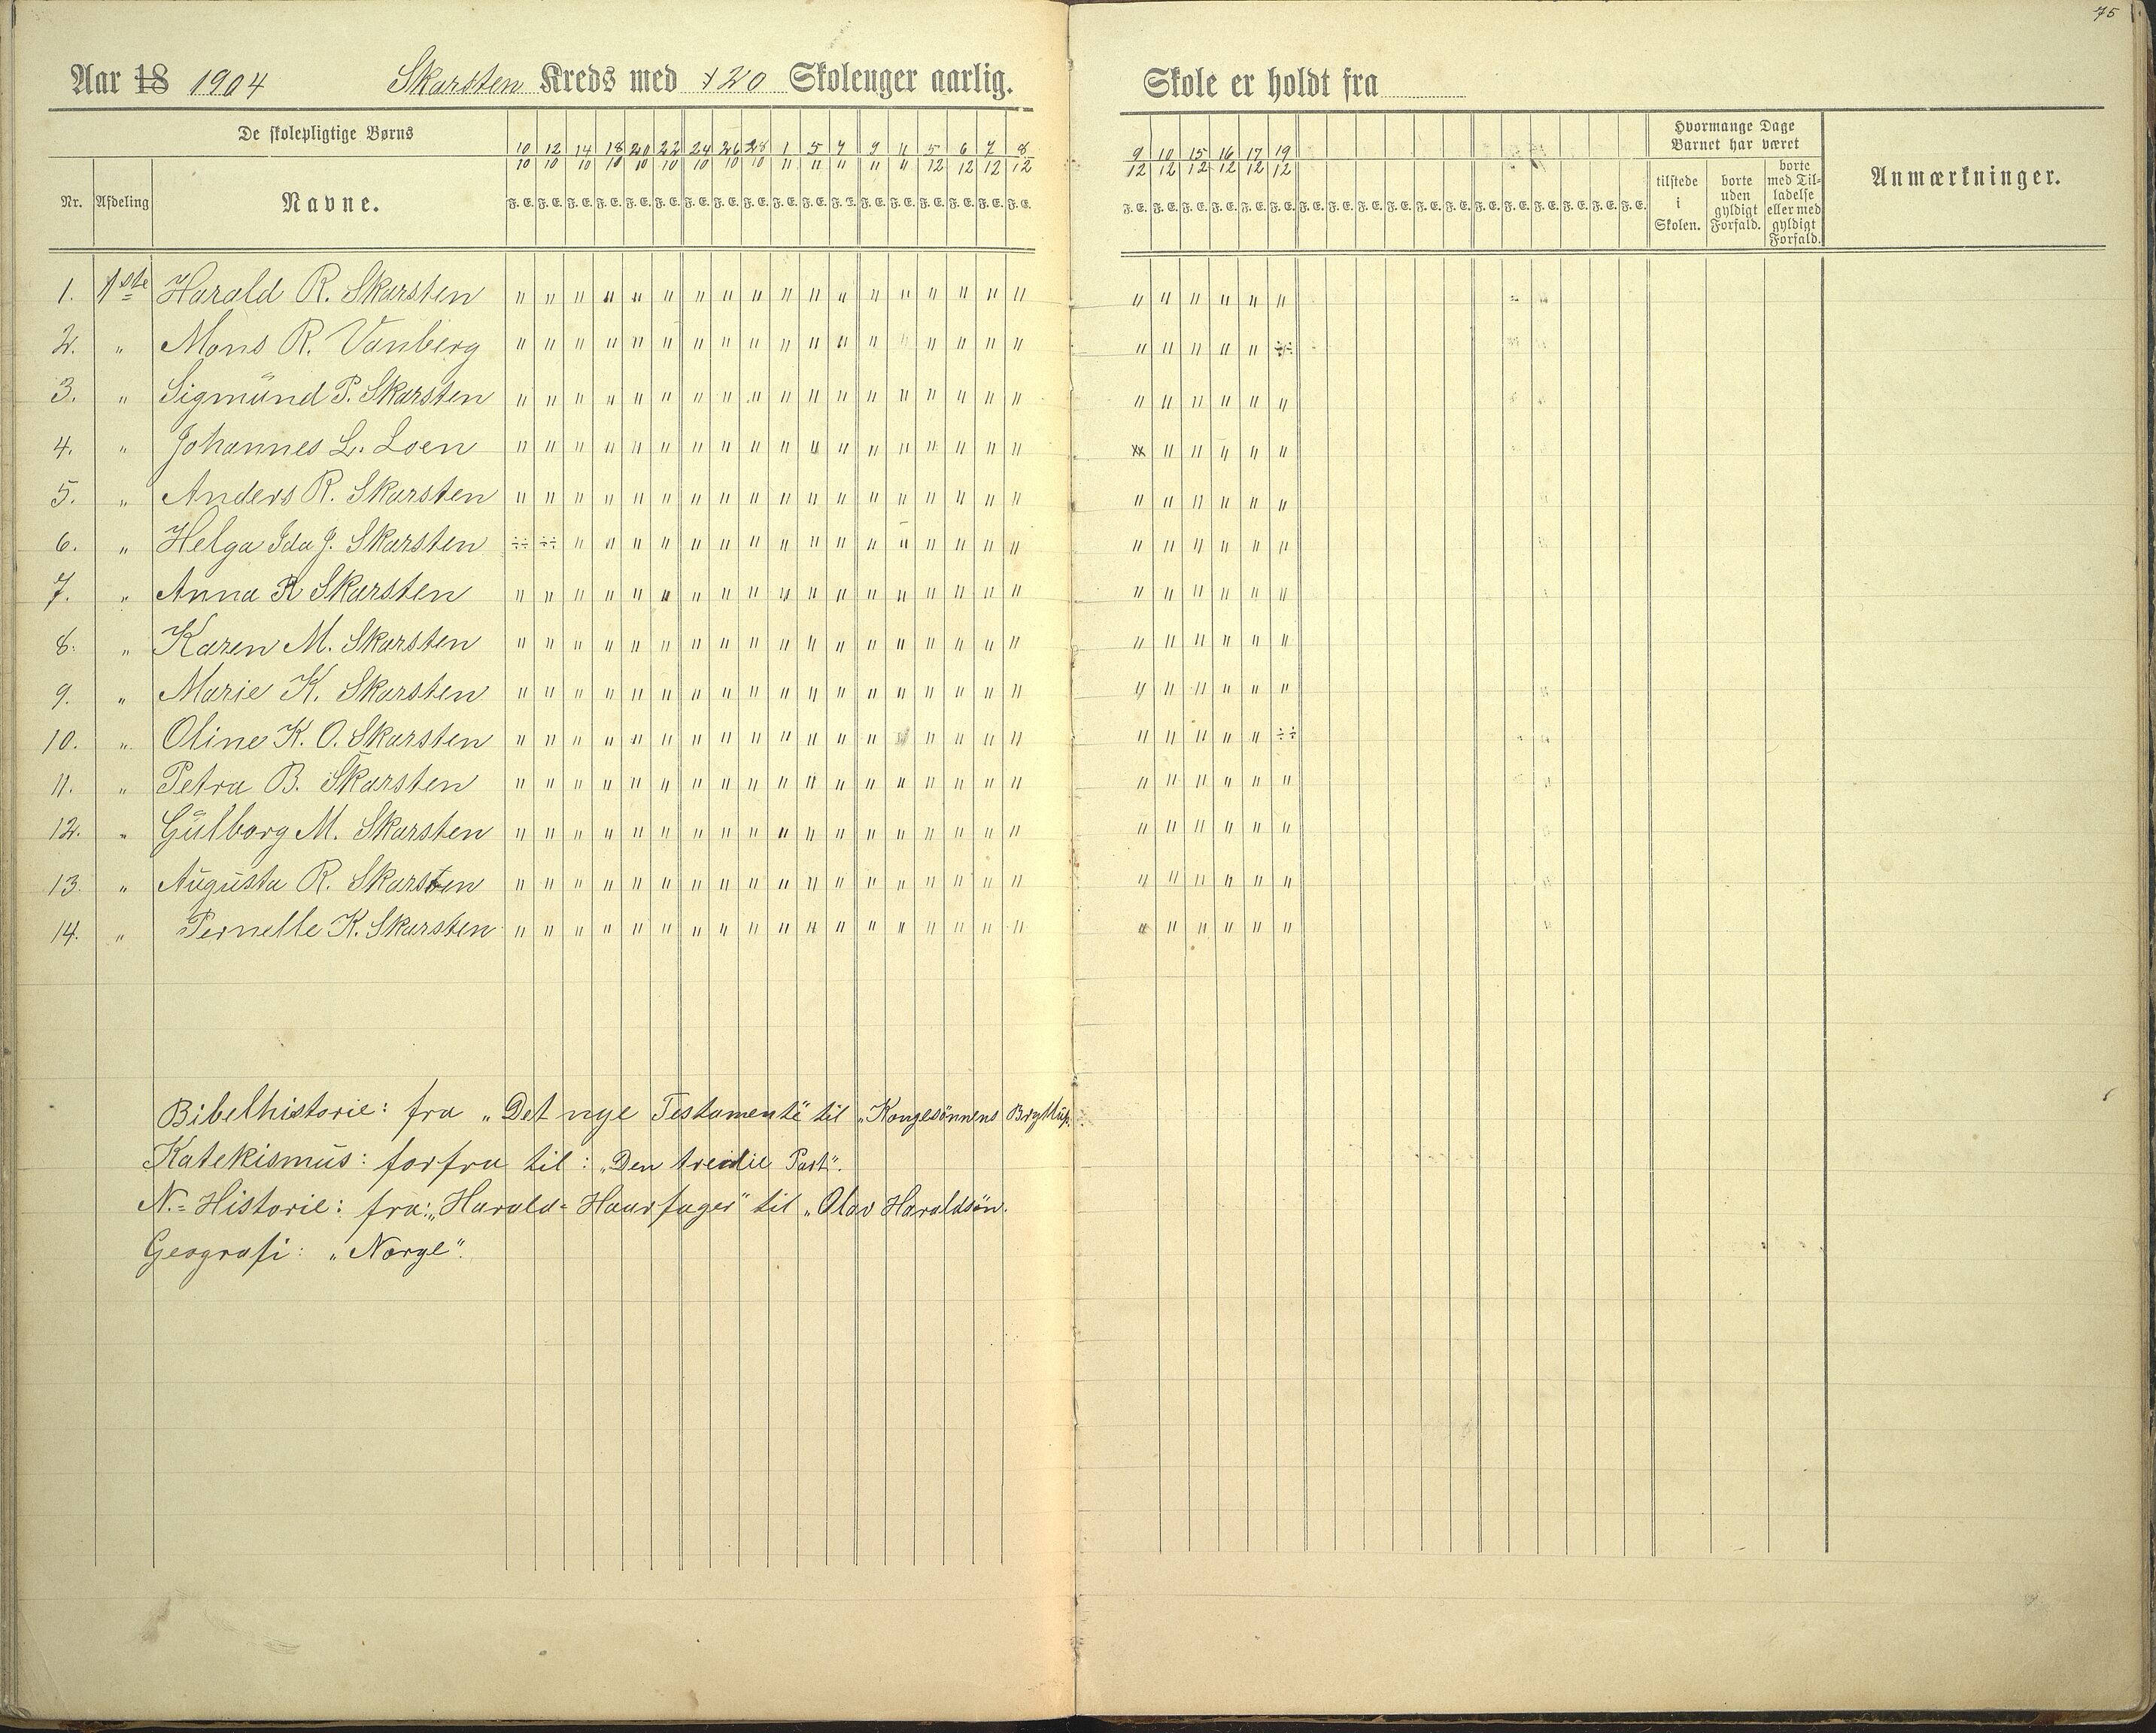 75
Aar 18 1904 Skarsten Kreds med 120 Skolenger aarlig. Skole er holdt fra
De skolepligtige Børns
Nr. Afdeling Navne.
10/10 12/10 14/10 18/10 20/10 22/10 24/10 26/10 28/10 1/11 5/11 7/11 9/11 11/11 5/12 6/12 7/12 8/12
F. E. F. E. F. E. F. E. F. E. F. E. F. E. F. E. F. E. F. E. F. E. F. E. F. E. F. E. F. E. F. E. F. E. F. E.
9/12 10/12 15/12 16/12 17/12 19/12
F. E. F. E. F. E. F. E. F. E. F. E. F. E. F. E. F. E. F. E. F. E. F. E. F. E. F. E. F. E. F. E. F. E. F. E.
Hvormange Dage
Barnet har været
tilstede
i
Skolen.
borte
uden
gyldigt
Forfald.
borte
med Til-
ladelse
eller med
gyldigt
Forfald.
Anmærkninger.
1. 1ste Harald R. Skarsten " " " " " " " " " " " " " " " " " " " " " " " "
2. " Mons R. Vanberg " " " " " " " " " " " " " " " " " " " " " " " ÷÷
3. " Sigmund P. Skarsten " " " " " " " " " " " " " " " " " " " " " " " "
4. " Johannes L. Loen " " " " " " " " " " " " " " " " " " xx " " " " "
5. " Anders R. Skarsten " " " " " " " " " " " " " " " " " " " " " " " "
6. " Helga Ida J. Skarsten ÷÷ ÷÷ " " " " " " " " " " " " " " " " " " " " " "
7. " Anna R Skarsten " " " " " " " " " " " " " " " " " " " " " " " "
8. " Karen M. Skarsten " " " " " " " " " " " " " " " " " " " " " " " "
9. " Marie K. Skarsten " " " " " " " " " " " " " " " " " " " " " " " "
10. " Oline K. O. Skarsten " " " " " " " " " " " " " " " " " " " " " " ÷÷
11. " Petra B. Skarsten " " " " " " " " " " " " " " " " " " " " " " " "
12. " Gulborg M. Skarsten " " " " " " " " " " " " " " " " " " " " " " " "
13. " Augusta R. Skarsten " " " " " " " " " " " " " " " " " " " " " " " "
14. " Pernelle K. Skarsten " " " " " " " " " " " " " " " " " " " " " " " "
Bibelhistorie: fra „Det nye Testamente" til „Kongesönnens Bryllup.
Katekismus: forfra til: „Den tredie Part".
N.= Historie: fra: „Harald=Haarfager" til „Olav Haraldsön.
Geografi: „Norge".